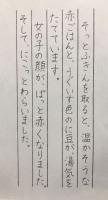 そっとふきんを取ると、温かそうな
赤ごはんと、うぐいす色のに豆が湯気を
たてています。
女の子の顔が、ぱっと赤くなりました。
そして、にこっとわらいました。